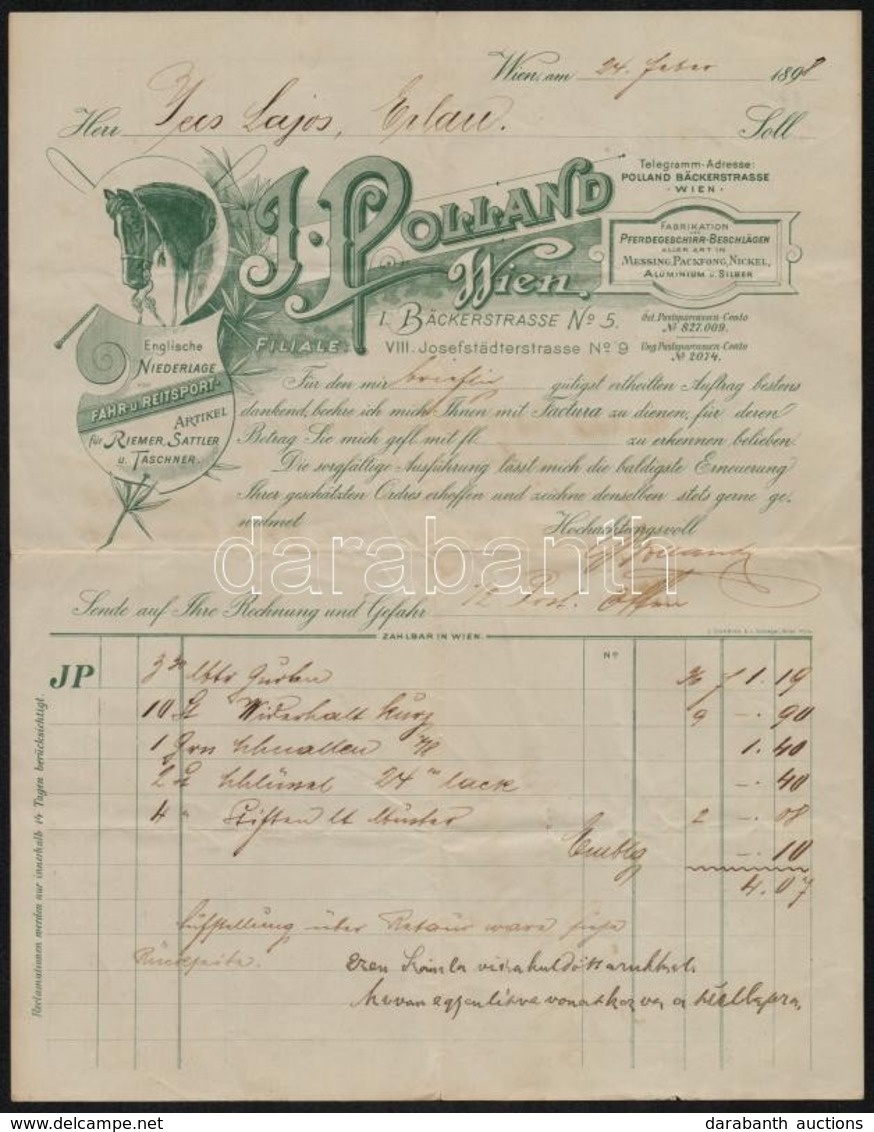 Wien, am 24. Feber 1898
Herr Lajos, Erlau. Soll
J. POLLAND
Wien.
I. BÄCKERSTRASSE No 5.
FILIALE: VIII. Josefstädterstrasse No 9
Telegramm-Adresse:
POLLAND BÄCKERSTRASSE
· WIEN ·
FABRIKATION
VON
PFERDEGESCHIRR-BESCHLÄGEN
ALLER ART IN
MESSING, PACKFONG, NICKEL,
ALUMINIUM U. SILBER
Öst. Postsparcassen-Conto
No 827.009.
Ung. Postsparcassen-Conto
No 2074.
Englische
NIEDERLAGE
VON
FAHR- U. REITSPORT-
ARTIKEL
für RIEMER, SATTLER
U. TASCHNER.
Für den mir brieflich gütigst ertheilten Auftrag bestens
dankend, beehre ich mich Ihnen mit Factura zu dienen, für deren
Betrag Sie mich gefl. mit fl. zu erkennen belieben.
Die sorgfältige Ausführung lässt mich die baldigste Erneuerung
Ihrer geschätzten Ordres erhoffen und zeichne denselben stets gerne ge-
widmet Hochachtungsvoll
JPolland
Sende auf Ihre Rechnung und Gefahr
ZAHLBAR IN WIEN.
JP No
3 Gurten 1.19
10 St Widerhalt kurz 9 –.90
1 Grs Schnallen 1.40
2 St Schlüssel 24 lack –.40
4 " Stiften lt Muster 2 –.08
Emblg –.10
4.07
Aufstellung über Retour ware siehe
Rückseite.
ezen számla
Reclamationen werden nur innerhalb 14 Tagen berücksichtigt.
darabanth
darabanth auctions